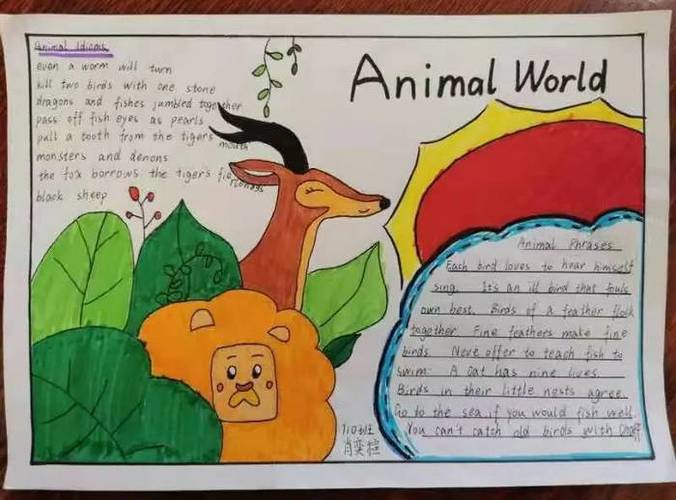 Animal World
Animal Idioms
even a worm will turn
kill two birds with one stone
dragons and fishes jumbled together
pass off fish eyes as pearls
pull a tooth from the tigers mouth
monsters and demons
the fox borrows the tiger's
black sheep
Animal Phrases
Each bird loves to hear himself
sing. It's an ill bird that fouls
own best. Birds of a feather flock
together. Fine feathers make fine
birds. Never offer to teach fish to
swim. A cat has nine lives.
Birds in their little nests agree.
Go to the sea if you would fish well.
You can't catch old birds with Chaff
710班
肖奕